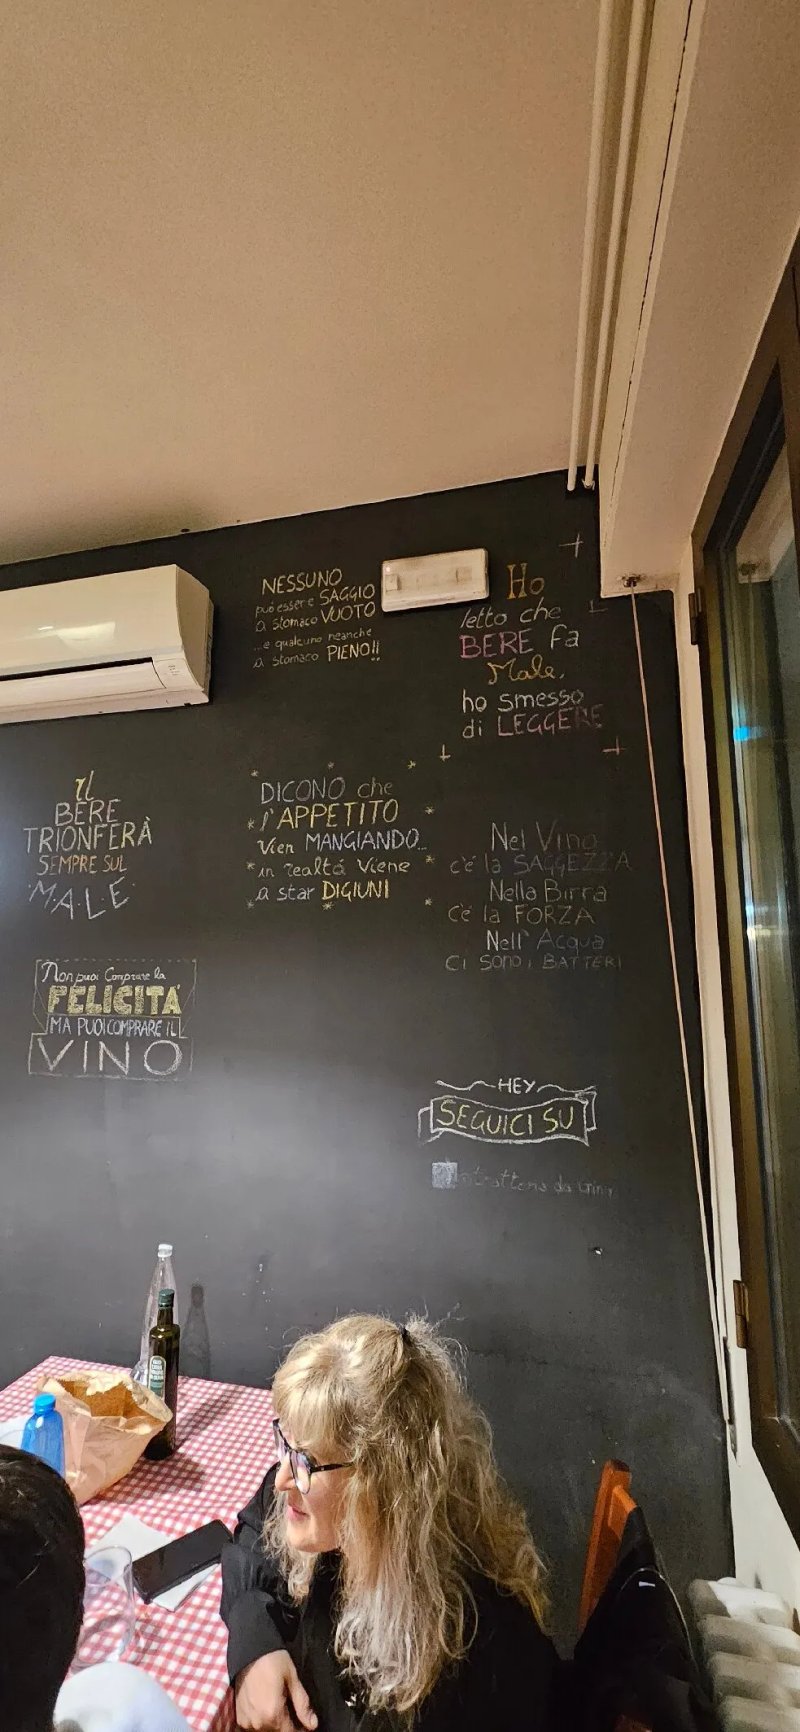 NESSUNO
può essere SAGGIO
a stomaco VUOTO
...e qualcuno neanche
a stomaco PIENO!!
Ho
letto che
BERE fa
Male,
ho smesso
di LEGGERE
Il
BERE
TRIONFERÀ
SEMPRE SUL
MALE
DICONO che
l'APPETITO
vien MANGIANDO...
in realtá viene
a star DIGIUNI
Nel Vino
c'é la SAGGEZZA
Nella Birra
c'é la FORZA
Nell' Acqua
ci sono i BATTERI
Non puoi Comprare la
FELICITA'
MA PUOI COMPRARE IL
VINO
HEY
SEGUICI SU